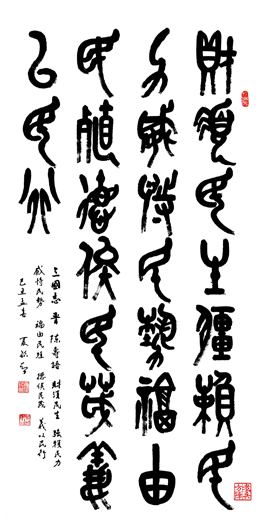 財須民生彊賴民
力威恃民勢福由
民殖德俟民茂義
以民行
三國志 晉 陳壽語 財須民生 強賴民力
威恃民勢 福由民殖 德俟民茂 義以民行
己丑